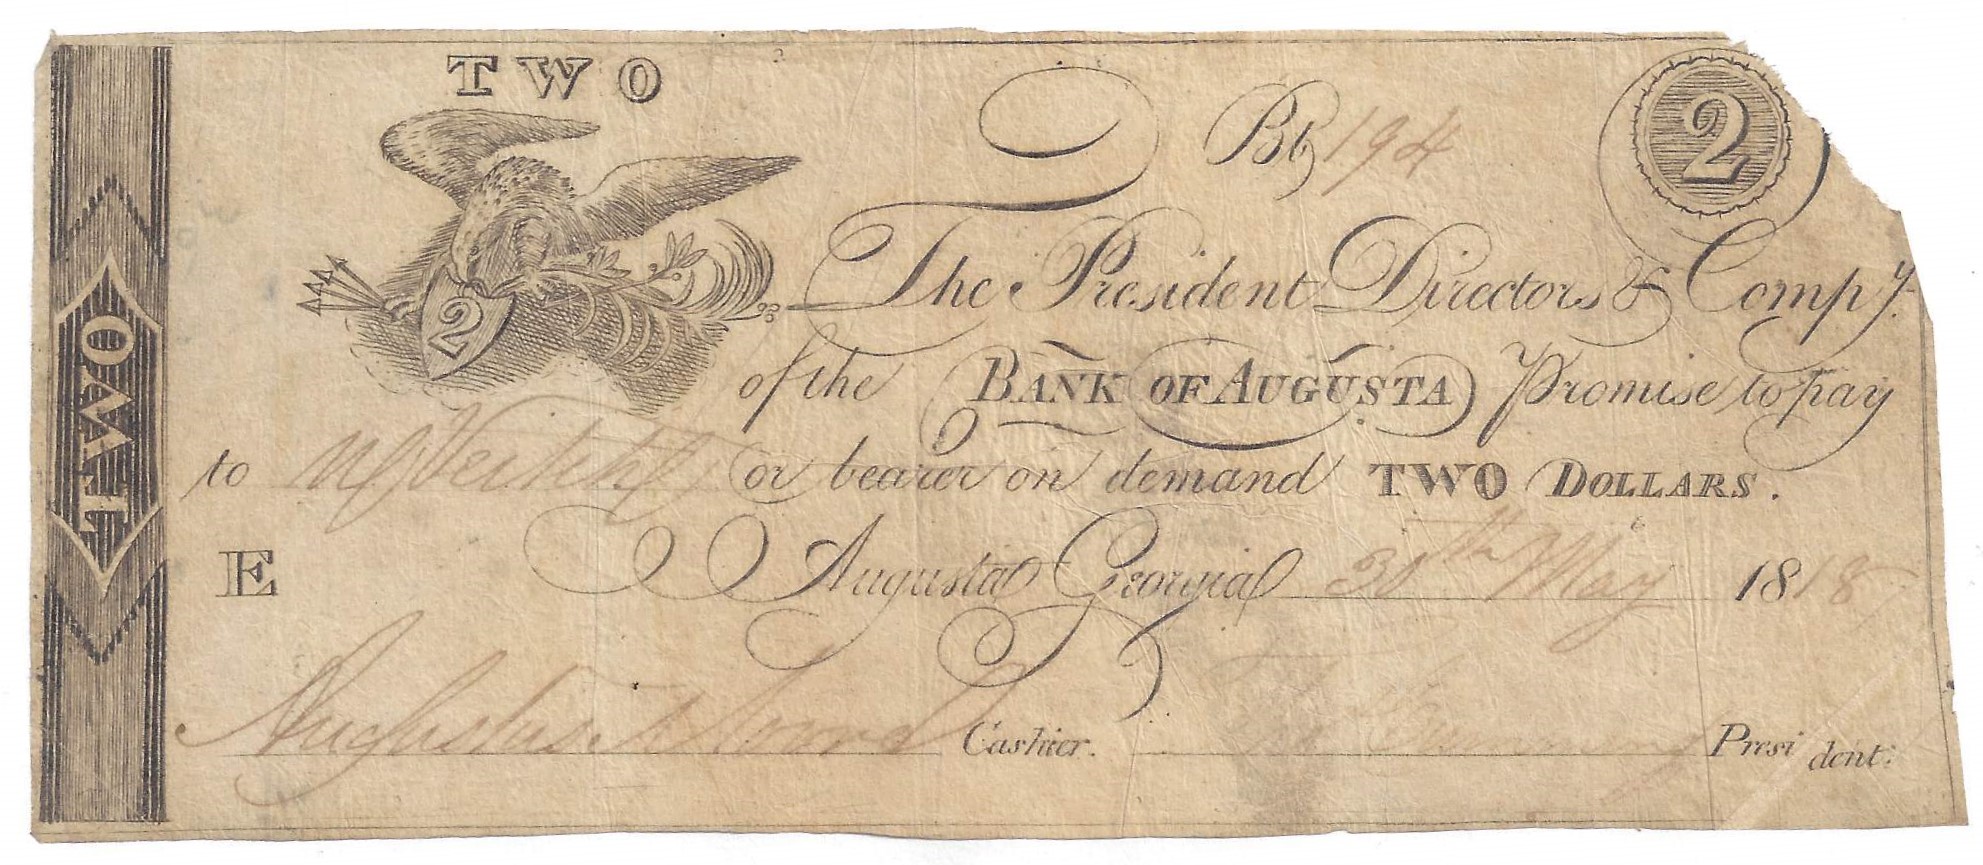 TWO
Bb 194
2
The President Directors & Compy.
2
of the BANK OF AUGUSTA Promise to pay
to or bearer on demand TWO DOLLARS.
E
Augusta Georgia 30th May 1818
Cashier. President.
TWO